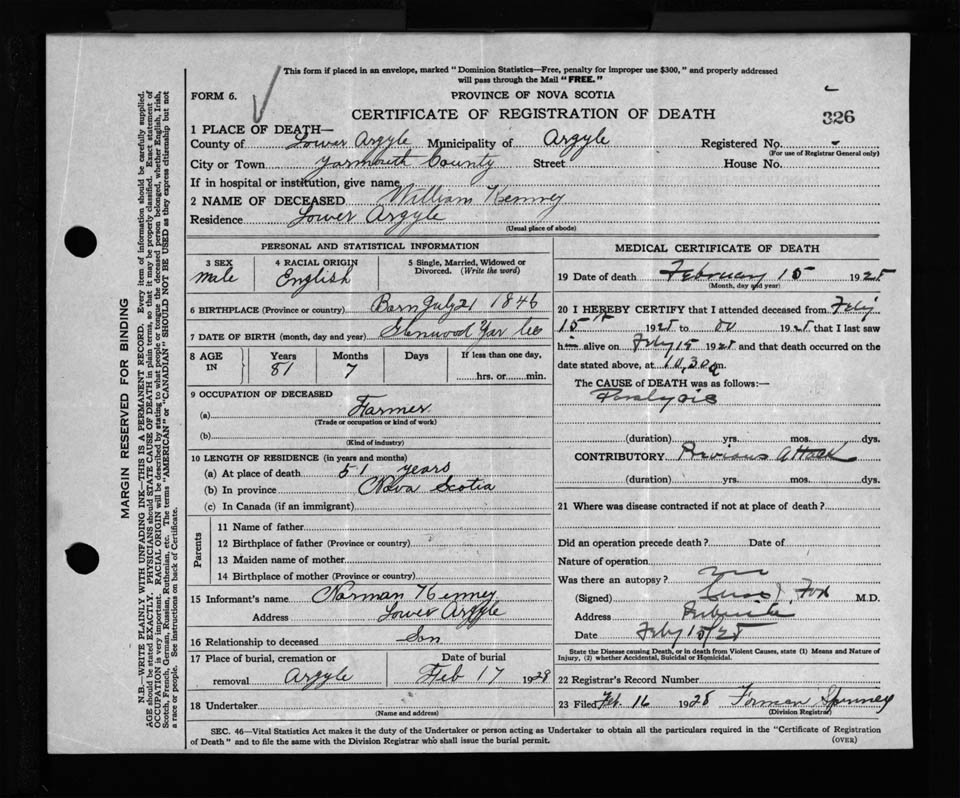 This form if placed in an envelope, marked "Dominion Statistics—Free, penalty for improper use $300," and properly addressed
will pass through the Mail "FREE."
FORM 6.
PROVINCE OF NOVA SCOTIA
CERTIFICATE OF REGISTRATION OF DEATH
326
1 PLACE OF DEATH—
County of Lower Argyle Municipality of Argyle Registered No.
(For use of Registrar General only)
City or Town Yarmouth County Street House No.
If in hospital or institution, give name
2 NAME OF DECEASED William Kenney
Residence Lower Argyle
(Usual place of abode)
PERSONAL AND STATISTICAL INFORMATION
3 SEX 4 RACIAL ORIGIN 5 Single, Married, Widowed or
Divorced. (Write the word)
Male English
6 BIRTHPLACE (Province or country) Born July 21 1846
7 DATE OF BIRTH (month, day and year) Glenwood Yar Co
8 AGE IN Years Months Days If less than one day,
81 7 hrs. or min.
9 OCCUPATION OF DECEASED
(a) Farmer
(Trade or occupation or kind of work)
(b)
(Kind of industry)
10 LENGTH OF RESIDENCE (in years and months)
(a) At place of death 51 years
(b) In province Nova Scotia
(c) In Canada (if an immigrant)
Parents
11 Name of father
12 Birthplace of father (Province or country)
13 Maiden name of mother
14 Birthplace of mother (Province or country)
15 Informant's name Norman Kenney
Address Lower Argyle
16 Relationship to deceased Son
17 Place of burial, cremation or Date of burial
removal Argyle Feb 17 1928
18 Undertaker
(Name and address)
MEDICAL CERTIFICATE OF DEATH
19 Date of death February 15 1928
(Month, day and year)
20 I HEREBY CERTIFY that I attended deceased from Feby
15th 1928 to 1928 that I last saw
him alive on Feby 15 1928 and that death occurred on the
date stated above, at 10,30 a m.
The CAUSE of DEATH was as follows:—
Paralysis
(duration) yrs. mos. dys.
CONTRIBUTORY Previous attack
(duration) yrs. mos. dys.
21 Where was disease contracted if not at place of death?
Did an operation precede death? Date of
Nature of operation
Was there an autopsy? no
(Signed) Fox M.D.
Address Pubnico
Date Feby 15/28
State the Disease causing Death, or in death from Violent Causes, state (1) Means and Nature of
Injury, (2) whether Accidental, Suicidal or Homicidal.
22 Registrar's Record Number
23 Filed Feb. 16 1928 Forman Spinney
(Division Registrar)
SEC. 46—Vital Statistics Act makes it the duty of the Undertaker or person acting as Undertaker to obtain all the particulars required in the "Certificate of Registration
of Death" and to file the same with the Division Registrar who shall issue the burial permit.
(OVER)
MARGIN RESERVED FOR BINDING
N.B.—WRITE PLAINLY WITH UNFADING INK—THIS IS A PERMANENT RECORD. Every item of information should be carefully supplied.
AGE should be stated EXACTLY. PHYSICIANS should STATE CAUSE OF DEATH in plain terms, so that it may be properly classified. Exact statement of
OCCUPATION is very important. RACIAL ORIGIN will be described by stating to what people or tongue the deceased person belonged, whether English, Irish,
Scotch, French, German, Russian, Ruthenian, etc. The terms "AMERICAN" or "CANADIAN" SHOULD NOT BE USED as they express citizenship but not
a race or people. See instructions on back of Certificate.